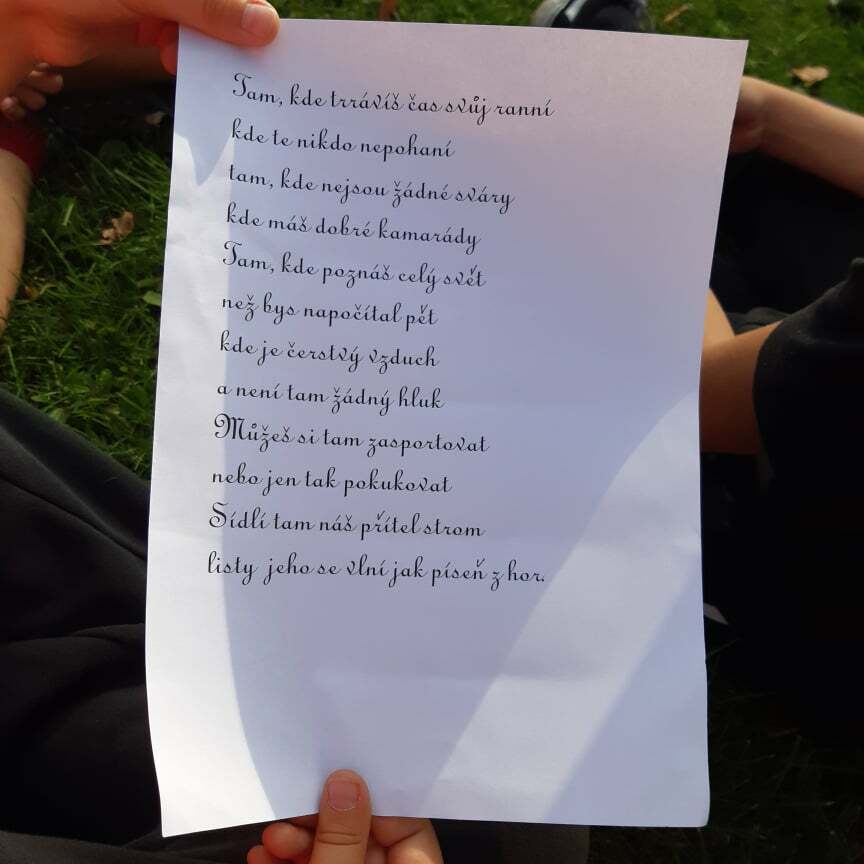 Tam, kde trrávíš čas svůj ranní
kde te nikdo nepohaní
tam, kde nejsou žádné sváry
kde máš dobré kamarády
Tam, kde poznáš celý svět
než bys napočítal pět
kde je čerstvý vzduch
a není tam žádný hluk
Můžeš si tam zasportovat
nebo jen tak pokukovat
Sídlí tam náš přítel strom
listy jeho se vlní jak píseň z hor.